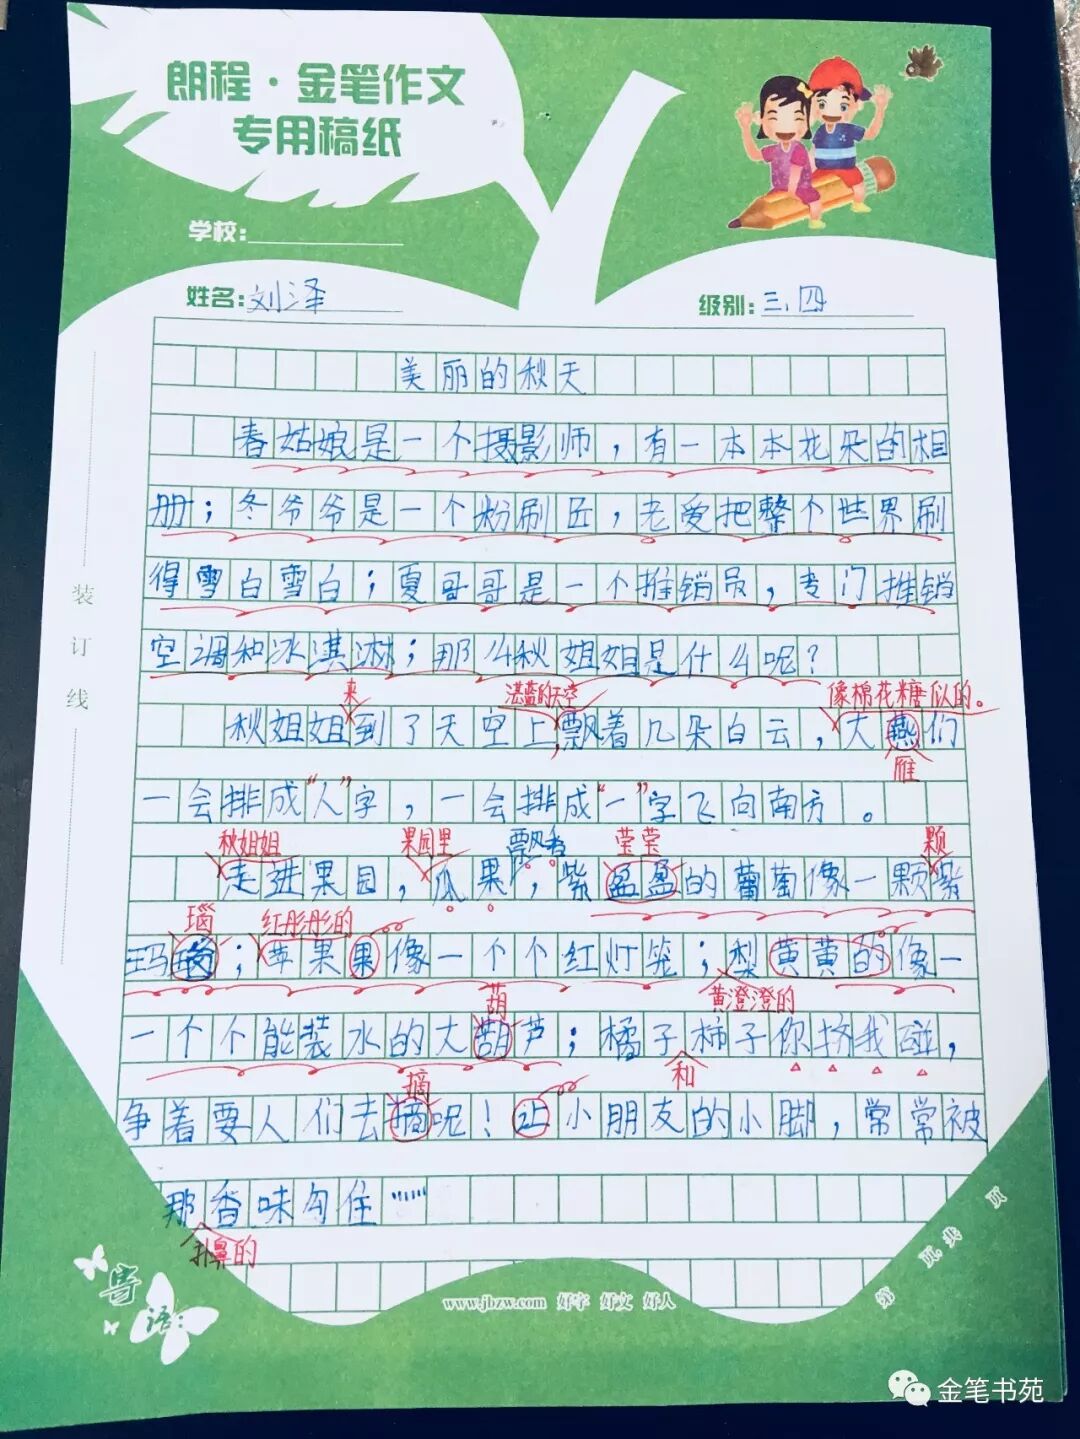 朗程·金笔作文
专用稿纸
学校:
姓名:刘泽
级别:三.四
美丽的秋天
春姑娘是一个摄影师，有一本本花朵的相
册；冬爷爷是一个粉刷匠，老爱把整个世界刷
得雪白雪白；夏哥哥是一个推销员，专门推销
空调和冰淇淋；那么秋姐姐是什么呢？
来
湛蓝的天空
像棉花糖似的。
秋姐姐到了天空上飘着几朵白云，大燕们
雁
一会排成“人”字，一会排成“一”字飞向南方。
秋姐姐
果园里
飘香
莹莹
颗
走进果园，瓜果，紫盈盈的葡萄像一颗紫
瑙
红彤彤的
玛；苹果果像一个个红灯笼；梨黄黄的像一
葫
黄澄澄的
一个个能装水的大葫芦；橘子柿子你挤我碰，
和
摘
争着要人们去摘呢！让小朋友的小脚，常常被
那香味勾住……
扑鼻的
装订线
寄语：
www.jbzw.com 好字 好文 好人
第 页，共 页
金笔书苑